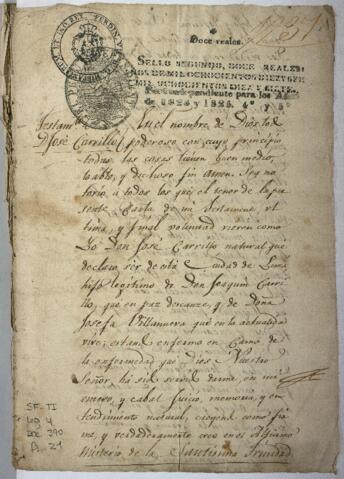 Doce reales.
SELLO SEGUNDO, DOCE REALES
AÑOS DE MIL OCHOCIENTOS DIEZ Y SEIS
MIL OCHOCIENTOS DIEZ Y SIETE.
Correspondiente para los
de 1824 y 1825. 4º y 5º
Testamto En el nombre de Dios todo
D José Carrillo poderoso con cuyo principio
todas las cosas tienen buen medio,
loable, y dichoso fin Amen. Sea no
torio, a todos los qe el tenor de la pre
sente Carta de mi testamento, ul
tima, y final voluntad vieren como
Yo Don José Carrillo natural que
declaro ser de esta Ciudad de Lima
hijo legitimo de Don Joaquin Carri
llo, que en paz descanze, y de Doña
Josefa Villanueva que en la actualidad
vive; estando enfermo en Cama de
la enfermedad que Dios Nuestro
Señor, ha sido servido darme, en mi
entero, y cabal juicio, memoria, y en
tendimiento natural, creyendo como fir
me, y verdaderamente creo en el
Misterio de la Santisima Trinidad